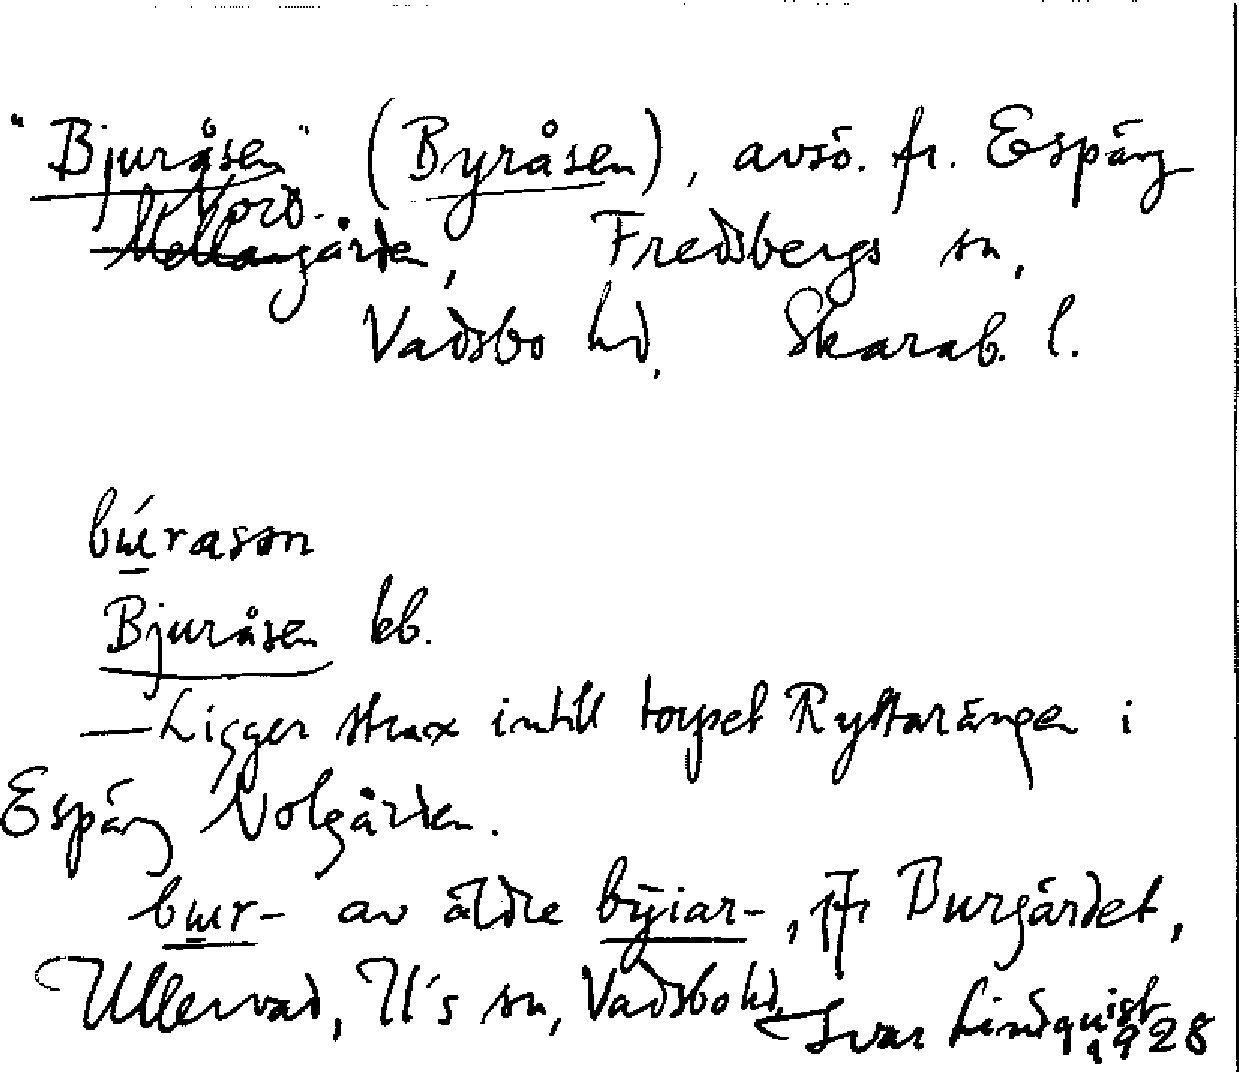 "Bjuråsen" (Byråsen), avsö. fr. Espäng
Nord.
Mellangården, Fredsbergs sn,
Vadsbo hd. Skarab. l.
búrasɷn
Bjuråsen kb.
— Ligger strax intill torpet Ryttarängen i
Espäng Nolgården.
bɯr- av äldre bȳiar-, jfr Burgärdet,
Ullervad, U's sn, Vadsbo hd.
Ivar Lindquist
1928